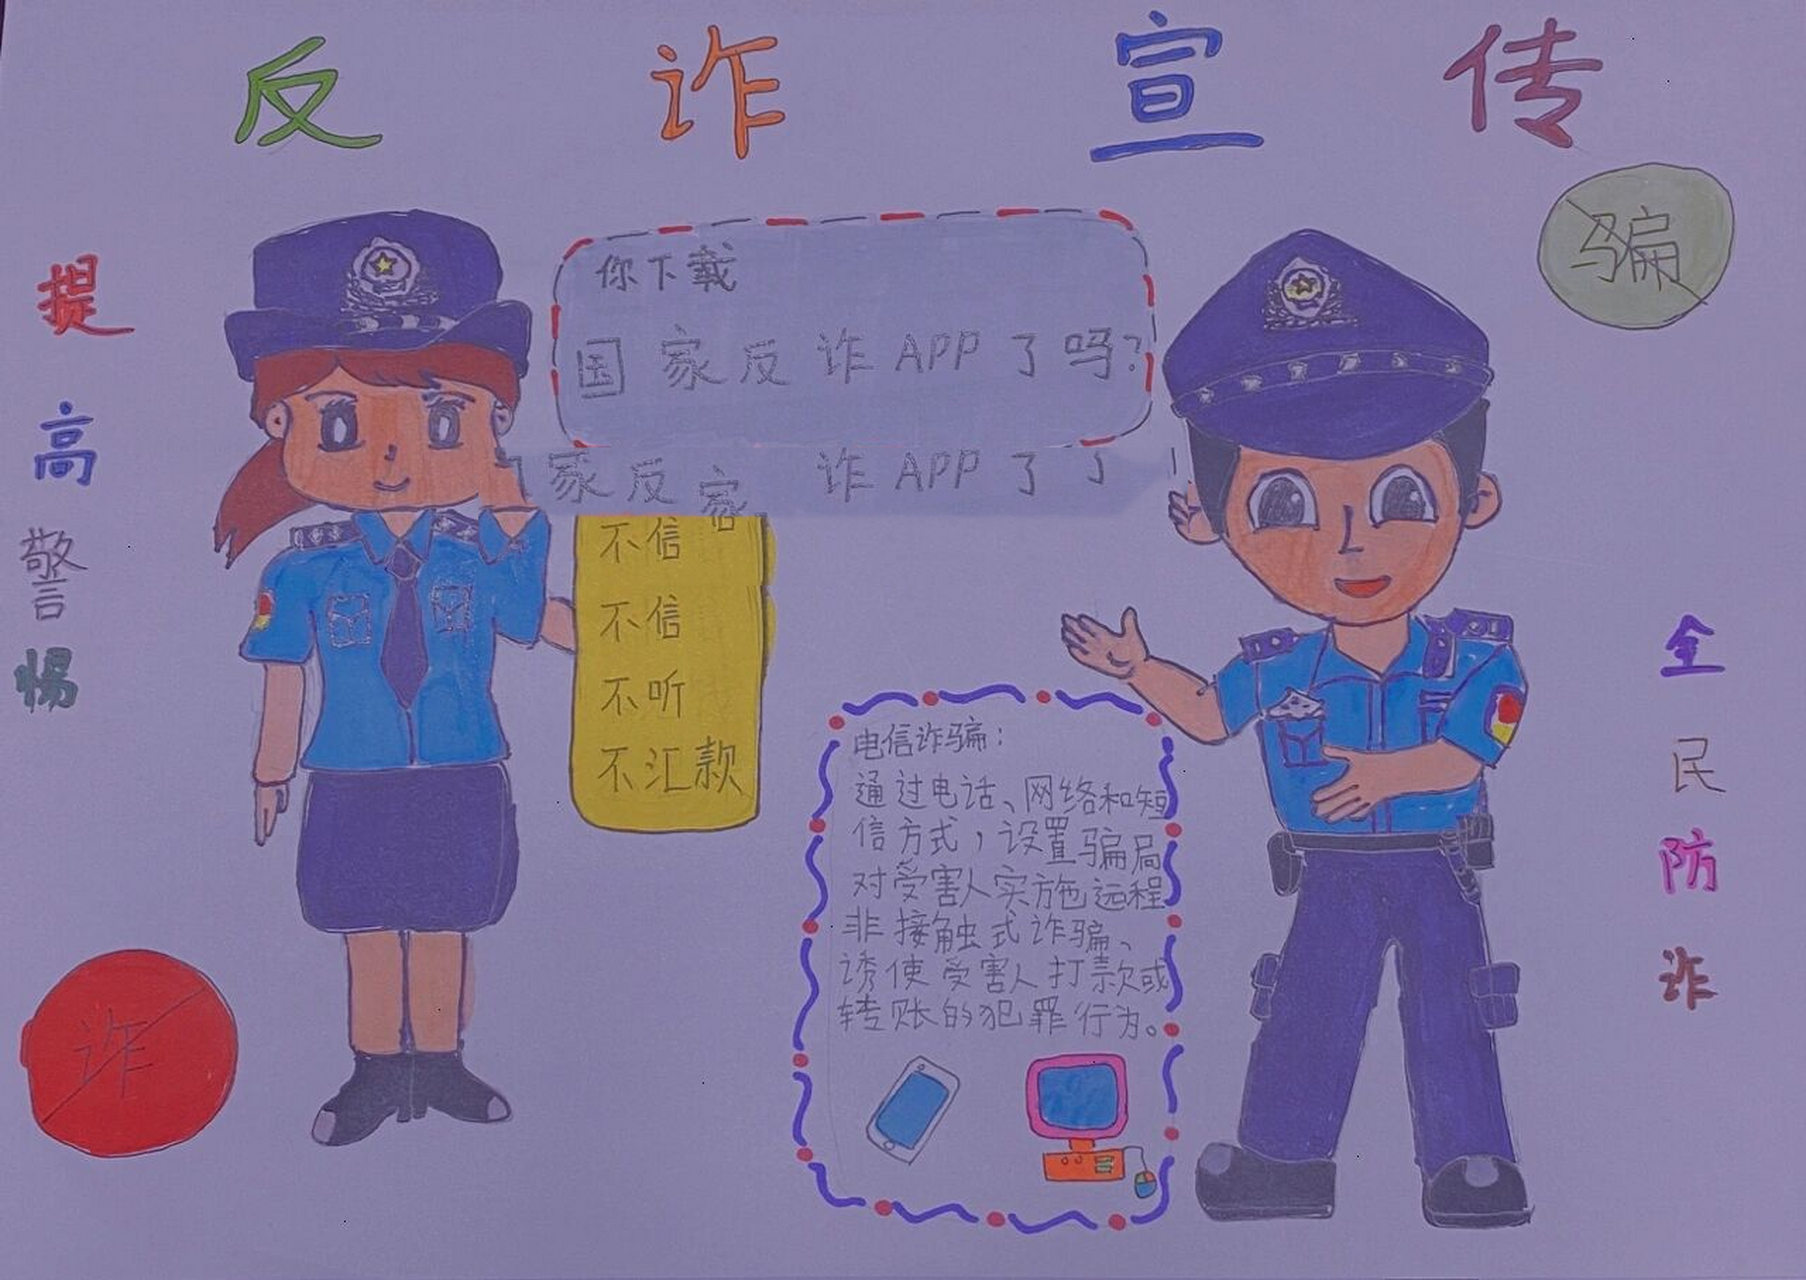 反诈宣传
骗
提高警惕
你下载
国家反诈APP了吗?
家反家 诈APP了了
不信
不信
不听
不汇款
全民防诈
诈
电信诈骗:
通过电话、网络和短
信方式,设置骗局
对受害人实施远程
非接触式诈骗、
诱使受害人打款或
转账的犯罪行为。